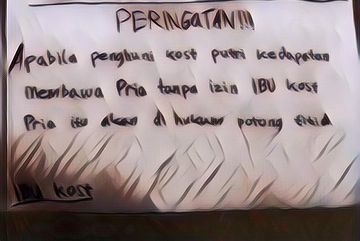 PERINGATAN!!!
Apabila penghuni kost putri kedapatan
membawa Pria tanpa izin IBU kost
Pria itu akan di hukum potong titid
IBU kost